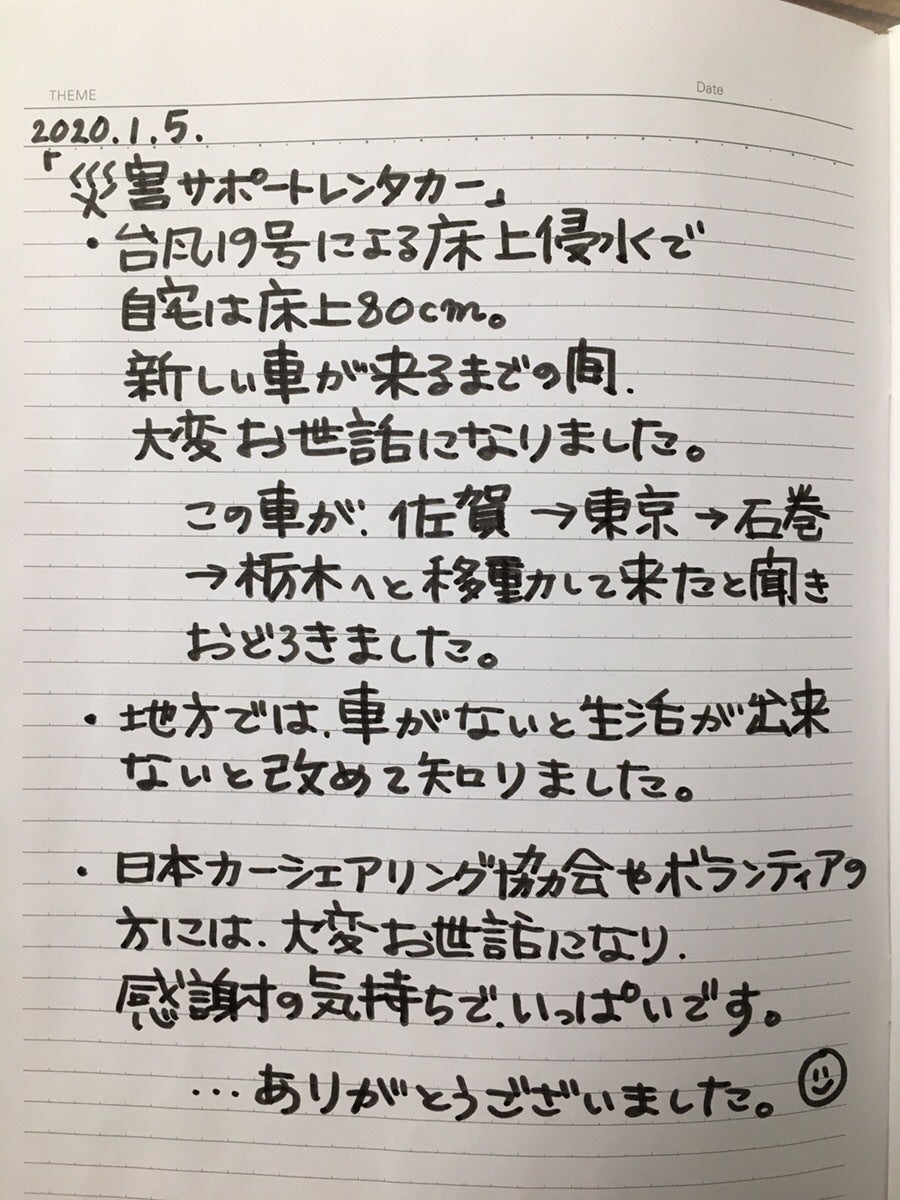 THEME
Date
2020.1.5.
「災害サポートレンタカー」
・台風19号による床上侵水で
自宅は床上80cm。
新しい車が来るまでの間、
大変お世話になりました。
この車が、佐賀→東京→石巻
→栃木へと移動して来たと聞き
おどろきました。
・地方では、車がないと生活が出来
ないと改めて知りました。
・日本カーシェアリング協会やボランティアの
方には、大変お世話になり、
感謝の気持ちで、いっぱいです。
…ありがとうございました。